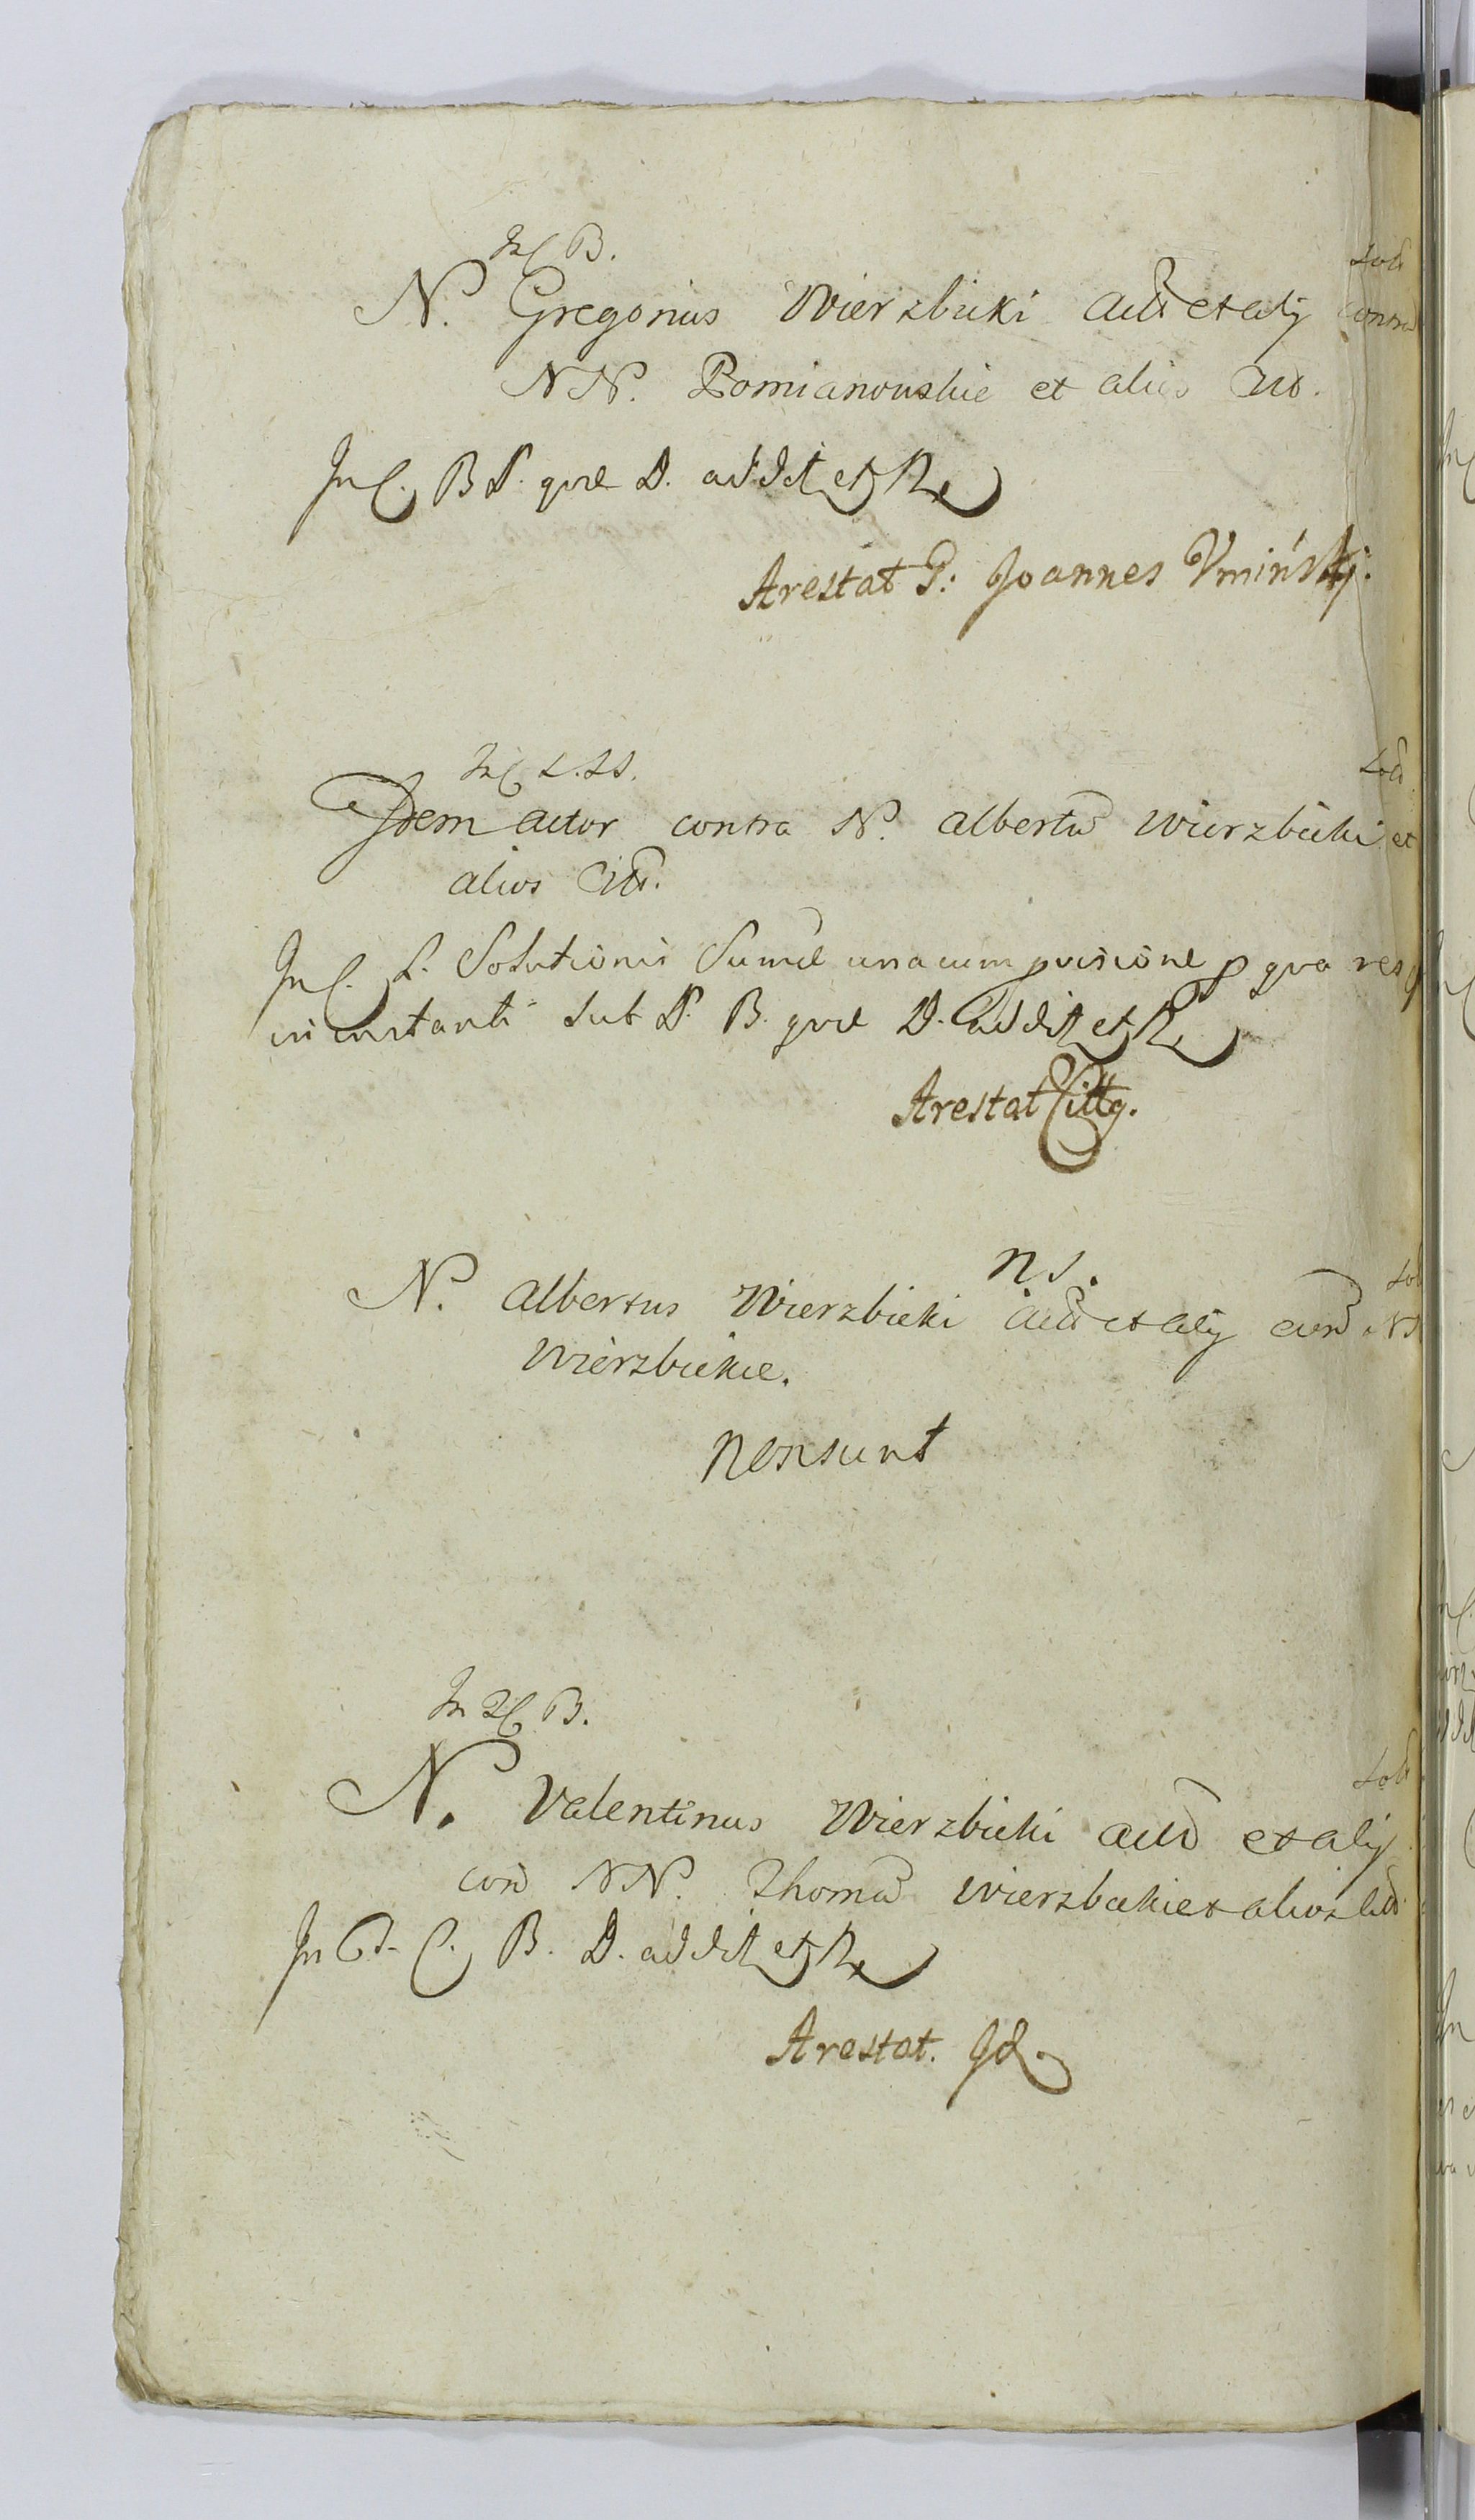 In C B.
N. Gregorius Wierzbicki act et alij contra
NN. Pomianowskie et alios Citt.
In C. B P. qvæ D. addit et R
Arestat P: Joannes Vmiński.
In C L. SS.
Idem actor contra N. Albertū Wierzbicki et
alios Citt.
In C. L. Solutionis Sumæ una cum provisione p qva resp
in instanti sub P. B. qvæ D. addit et R
Arestat Citt9.
n s.
N. Albertus Wierzbicki act et alij con NN
Wierzbickie.
non sunt
In 2 C B.
N. Valentinus Wierzbicki act et alij
con NN. Thomā Wierzbicki et alios Citt
In P. C. B. D. addit et R
Arestat. Id.